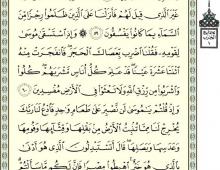 غَيْرَ ٱلَّذِى قِيلَ لَهُمْ فَأَنزَلْنَا عَلَى ٱلَّذِينَ ظَلَمُوا۟ رِجْزًا مِّنَ
ٱلسَّمَآءِ بِمَا كَانُوا۟ يَفْسُقُونَ ٥٩ وَإِذِ ٱسْتَسْقَىٰ مُوسَىٰ
لِقَوْمِهِۦ فَقُلْنَا ٱضْرِب بِّعَصَاكَ ٱلْحَجَرَ فَٱنفَجَرَتْ مِنْهُ
ٱثْنَتَا عَشْرَةَ عَيْنًا قَدْ عَلِمَ كُلُّ أُنَاسٍ مَّشْرَبَهُمْ كُلُوا۟
وَٱشْرَبُوا۟ مِن رِّزْقِ ٱللَّهِ وَلَا تَعْثَوْا۟ فِى ٱلْأَرْضِ مُفْسِدِينَ ٦٠
وَإِذْ قُلْتُمْ يَٰمُوسَىٰ لَن نَّصْبِرَ عَلَىٰ طَعَامٍ وَٰحِدٍ فَٱدْعُ لَنَا رَبَّكَ
يُخْرِجْ لَنَا مِمَّا تُنۢبِتُ ٱلْأَرْضُ مِنۢ بَقْلِهَا وَقِثَّآئِهَا وَفُومِهَا
وَعَدَسِهَا وَبَصَلِهَا قَالَ أَتَسْتَبْدِلُونَ ٱلَّذِى هُوَ أَدْنَىٰ
بِٱلَّذِى هُوَ خَيْرٌ ٱهْبِطُوا۟ مِصْرًا فَإِنَّ لَكُم مَّا سَأَلْتُمْ